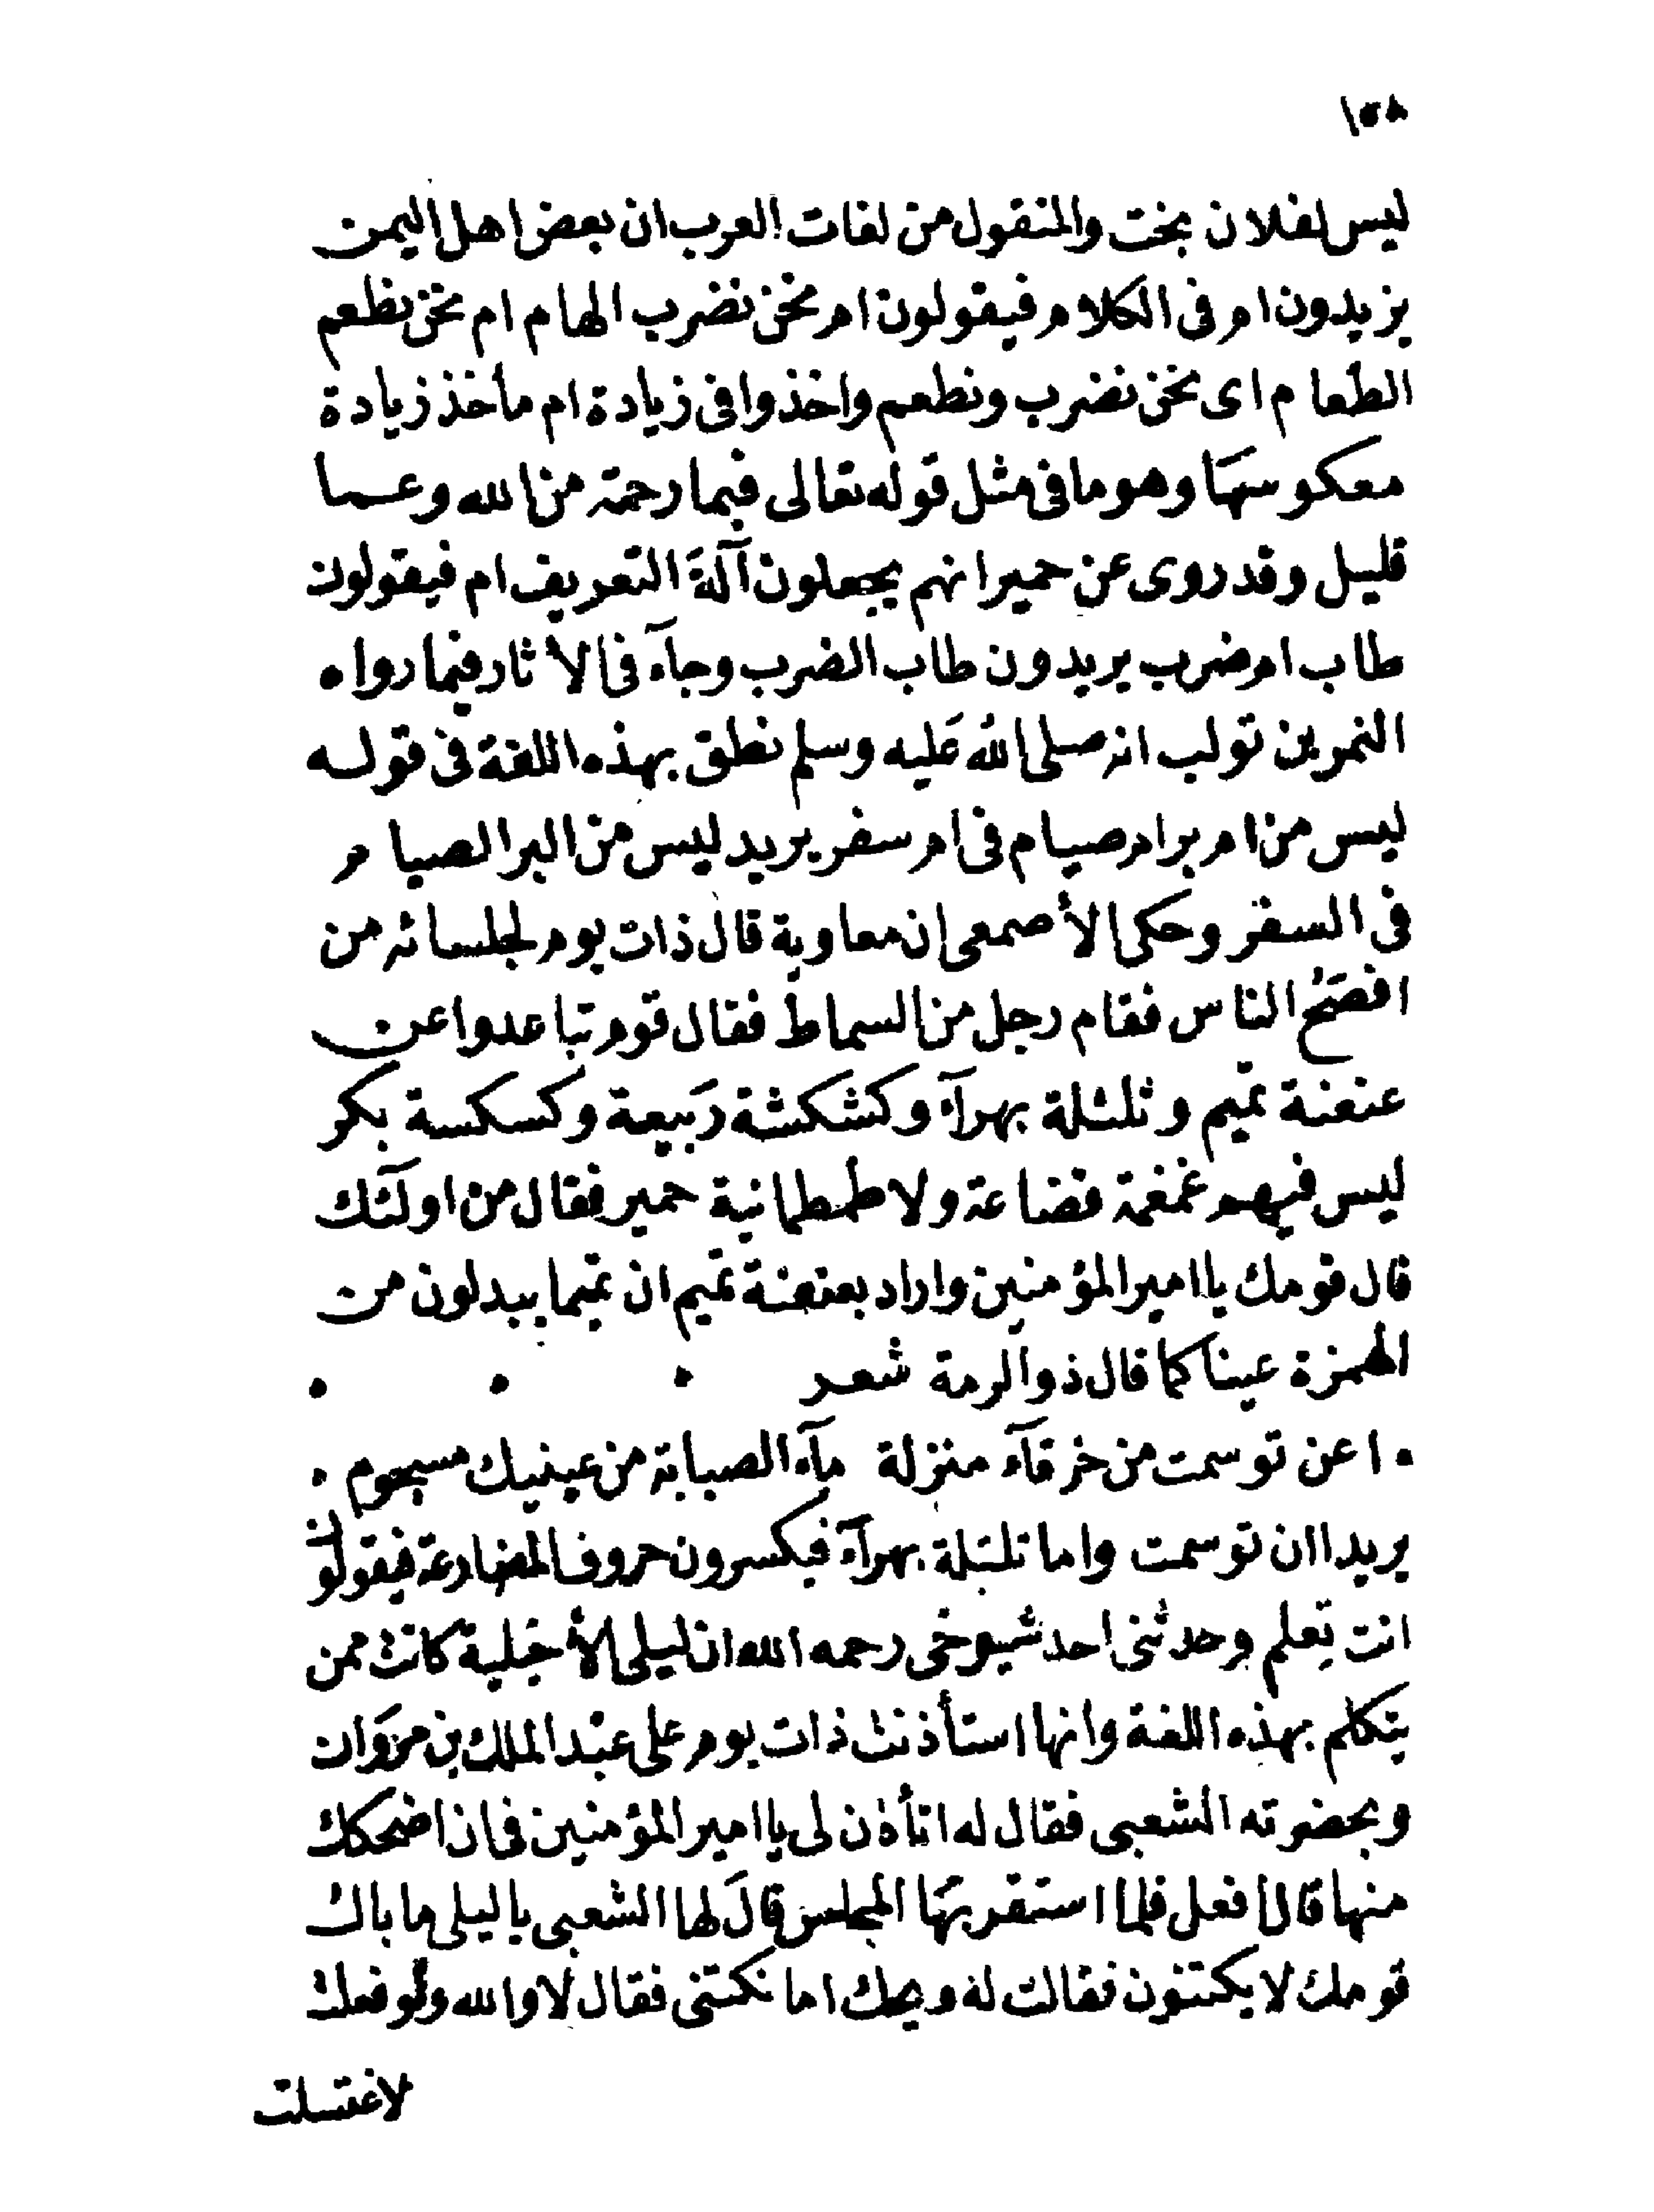 ١٥٨
ليس لفلان بخت والمنقول من لغات العرب ان بعض اهل اليمن
يزيدون ام فى الكلام فيقولون ام نحن نضرب الهام ام نحن نطعم
الطعام اى نحن نضرب ونطعم واخذوا فى زيادة ام مأخذ زيادة
معكوسها وهو ما فى مثل قوله تعالى فبما رحمة من الله وعما
قليل وقد روى عن حمير انهم يجعلون آلة التعريف ام فيقولون
طاب ام ضرب يريدون طاب الضرب وجآء فى الأثار فيما رواه
النمر بن تولب انه صلى الله عليه وسلم نطق بهذه اللغة فى قوله
ليس من ام بر ام صيام فى ام سفر يريد ليس من البر الصيام
فى السفر وحكى الأصمعى ان معاوية قال ذات يوم لجلسائه من
افصح الناس فقام رجل من السماط فقال قوم تباعدوا عن
عنعنة تميم وتلتلة بهرآء وكشكشة ربيعة وكسكسة بكر
ليس فيهم غمغمة قضاعة ولا طمطمانية حمير فقال من اولئك
قال قومك يا امير المؤمنين واراد بعنعنة تميم ان تميما يبدلون من
الهمزة عينا كما قال ذو الرمة شعر
اعن توسمت من خرقآء منزلة مآء الصبابة من عينيك مسجوم
يريد اان توسمت واما تلتلة بهرآء فيكسرون حروف المضارعة فيقولون
انت تعلم وحدثنى احد شيوخى رحمه الله ان ليلى الأخيلية كانت ممن
يتكلم بهذه اللغة وانها استأذنت ذات يوم على عبد الملك بن مروان
وبحضرته الشعبى فقال له اتأذن لى يا امير المؤمنين فى ان اضحكك
منها قال افعل فلما استقر بها المجلس قال لها الشعبى يا ليلى ما بال
قومك لا يكتنون فقالت له ويحك اما نكتنى فقال لا والله ولو فعلت
لاغتسلت